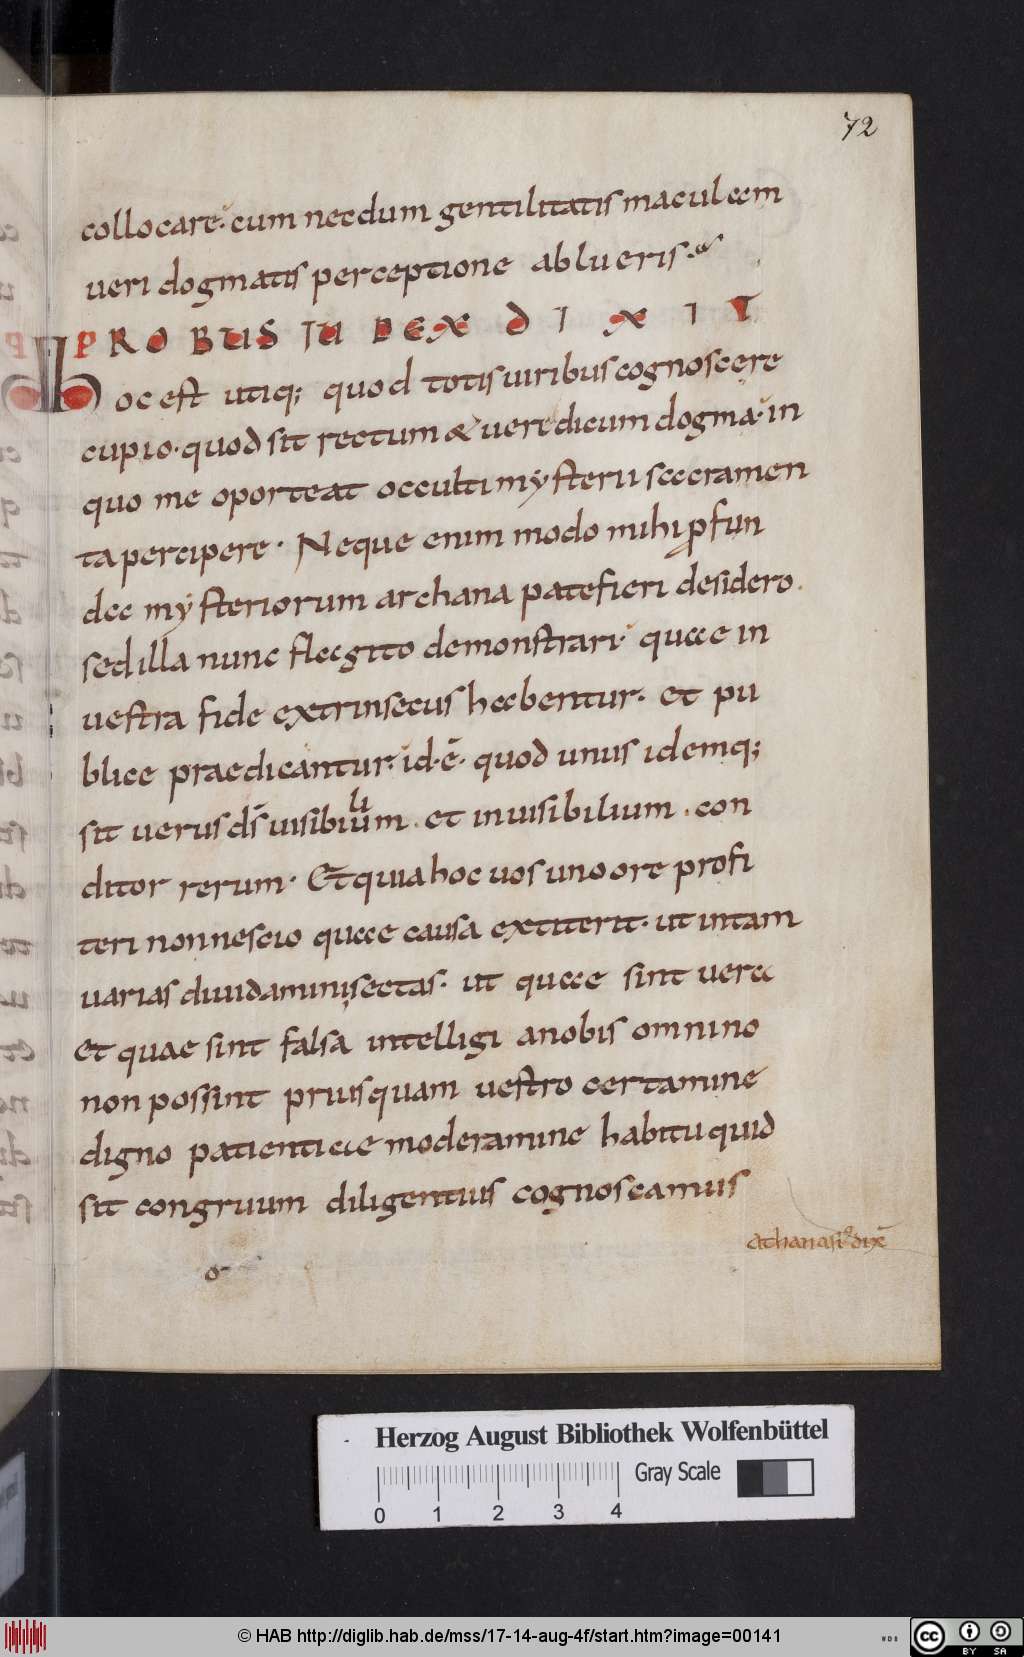 72
collocare· cum necdum gentilitatis maculam
ueri dogmatis perceptione ablueris·
PROBUS IUDEX DIXIT
Hoc est utiq; quod totis uiribus cognoscere
cupio· quod sit rectum & ueredicum dogma· in
quo me oporteat occulti mysterii sacramen
ta percipere· Neque enim modo mihi ꝓfun
da mysteriorum archana patefieri desidero·
sed illa nunc flagito demonstrari· quae in
uestra fide extrinsecus habentur· et pu
blice praedicantur· id·ē· quod unus idemq;
sit uerus d̄s uisibiliūm· et inuisibilium· con
ditor rerum· Et quia hoc uos uno ore profi
teri non nescio quae causa extiterit· ut in tam
uarias diuidamini sectas· ut quae sint uera
et quae sint falsa intelligi a nobis omnino
non possint priusquam uestro certamine
digno patientiae moderamine habitu quid
sit congruum diligentius cognoscamus
athanasi᷒ dix̄
Herzog August Bibliothek Wolfenbüttel
Gray Scale
0 1 2 3 4
© HAB http://diglib.hab.de/mss/17-14-aug-4f/start.htm?image=00141
WDB
cc BY SA